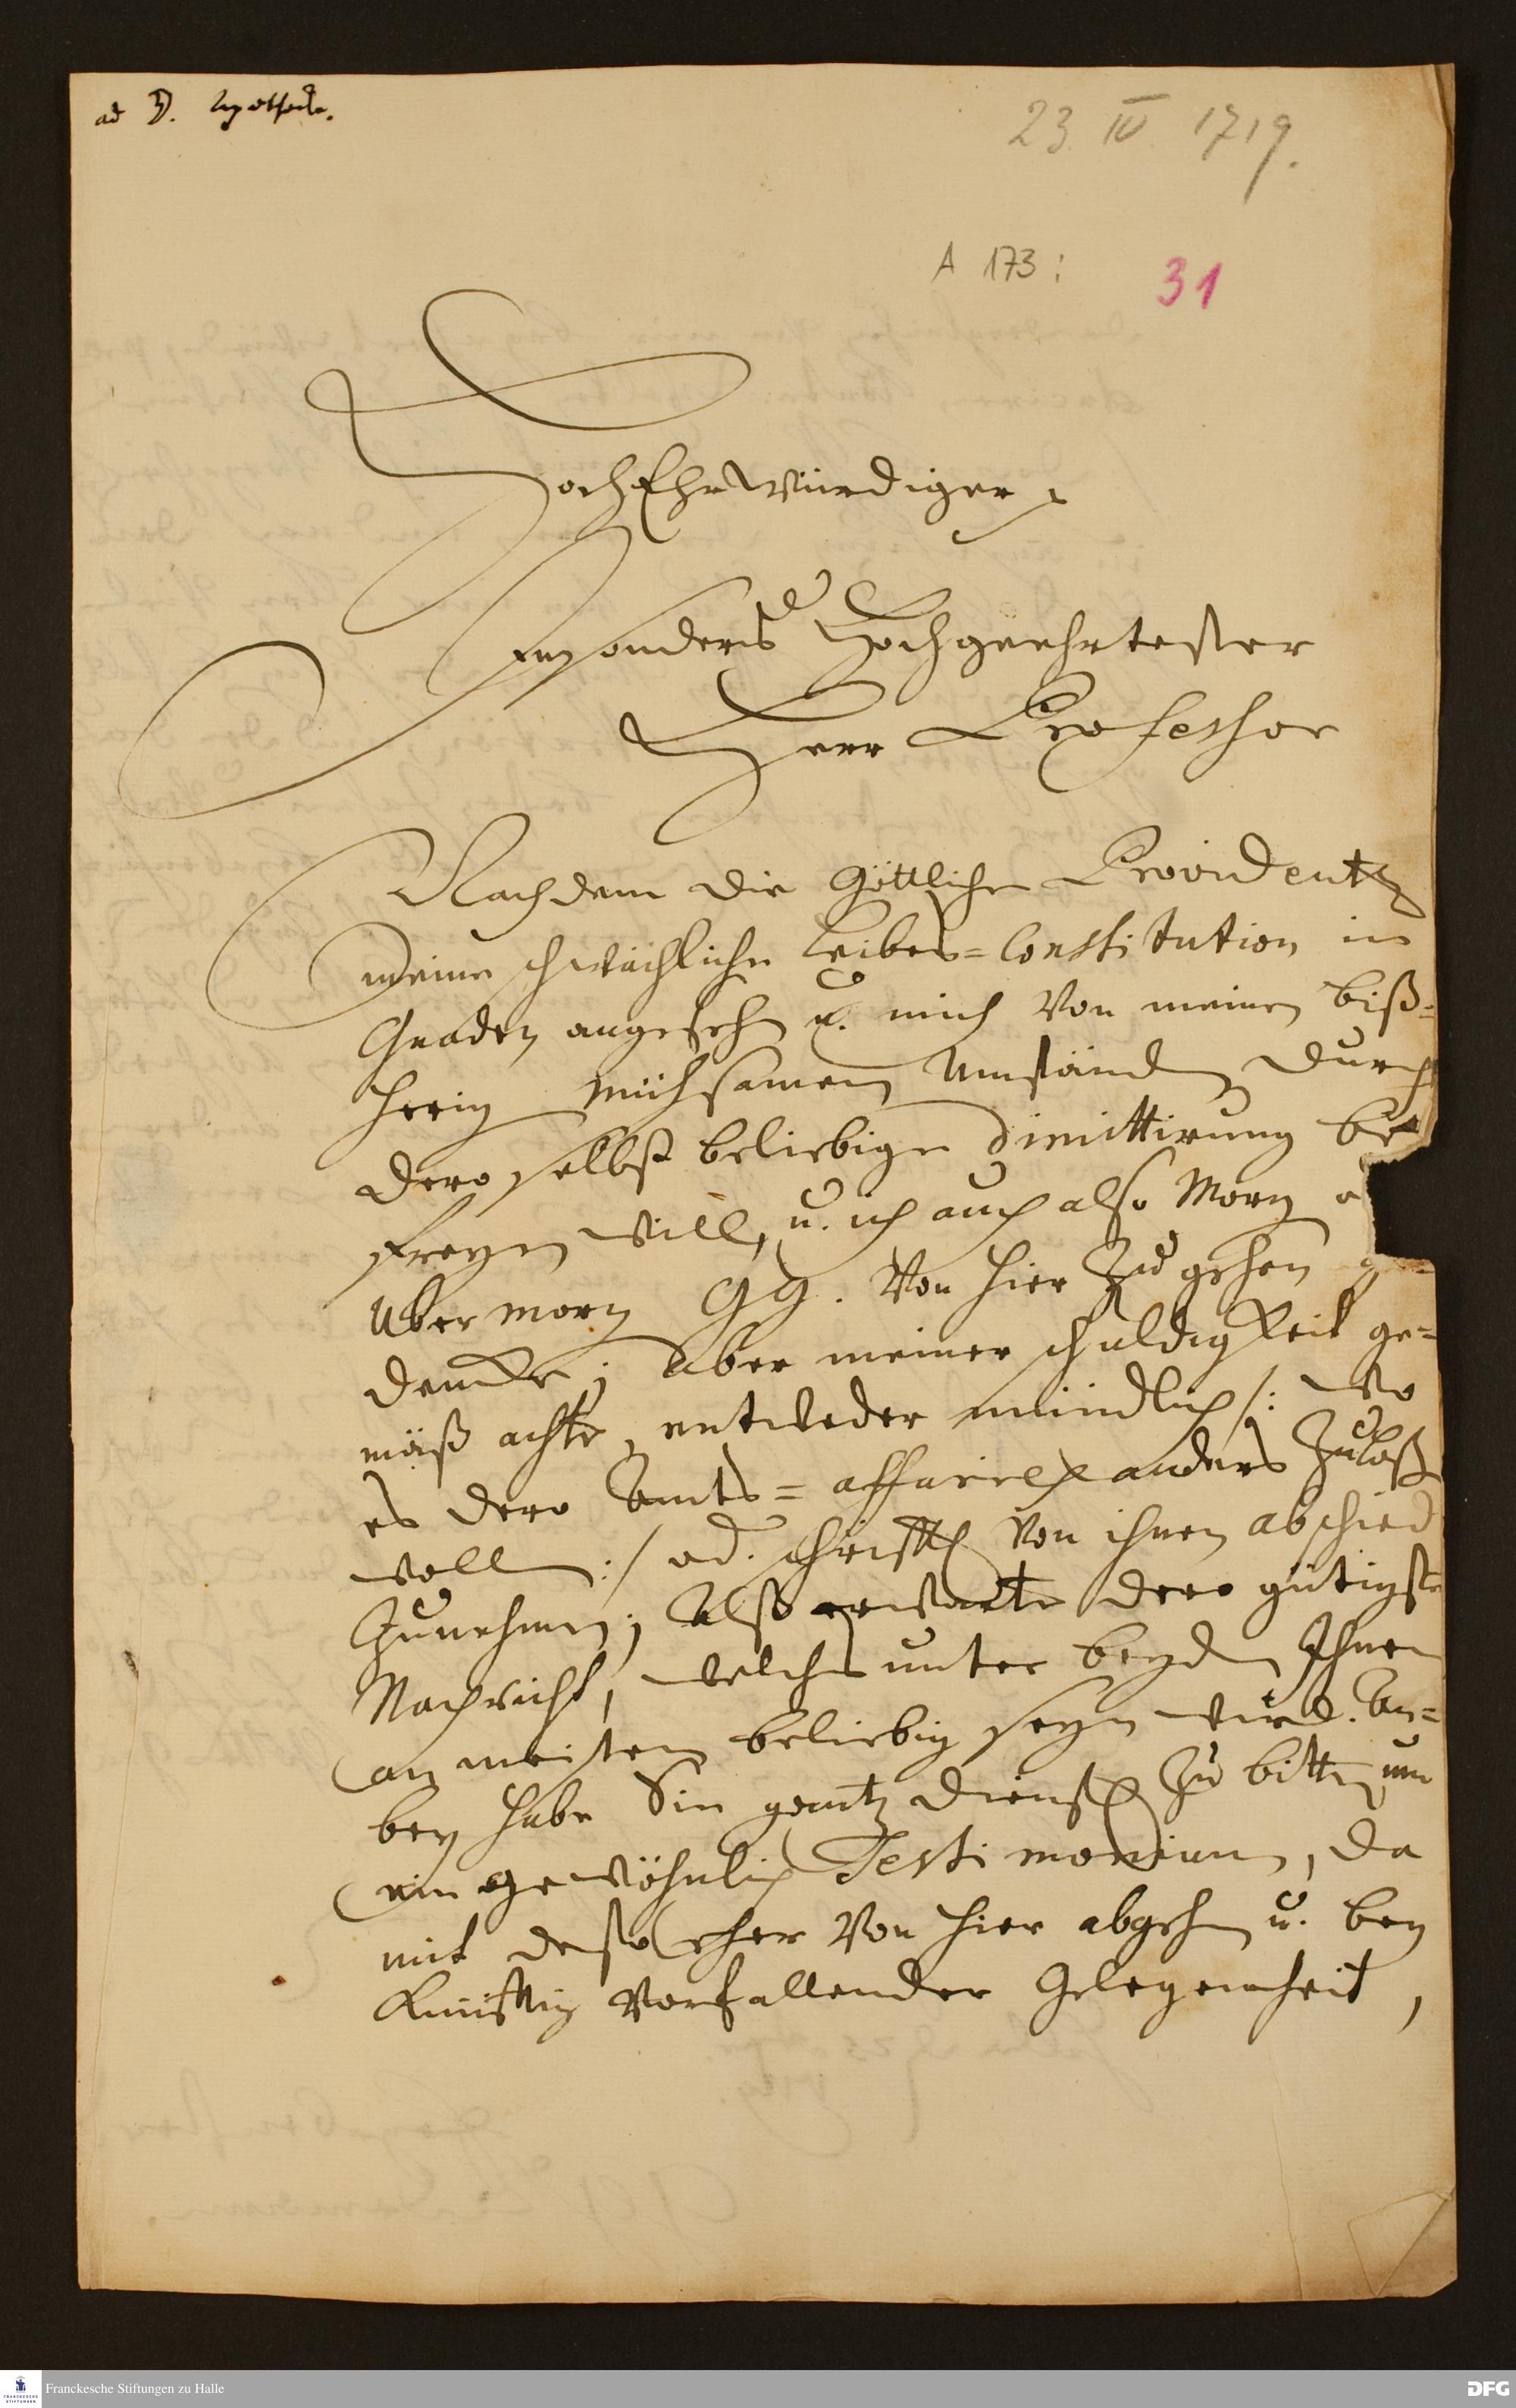 ad D. Apotheck.
23. IV 1719.
A 173: 31
HochEhrwürdiger
Insonders Hochgeehrtester
Herr Professor
Nachdem die Göttliche Providentz
meine schwächliche Leibes=Constitution in
Gnaden angesehen u. mich von meinen biß=
herig mühsamen Umständen durch
dero selbst beliebige Dimittirung be
freyen will, u. ich auch also Morg o
übermorg GG. von hier zu gehen ge=
dencke; Aber meiner schuldigkeit ge=
mäß achte, entweder mündlich /: wo
es dero Amts=affairen anders zulaß
wollen :/ od. schrifftl von ihnen abschied
zunehmen; Alß erwarte dero gütigste
Nachricht, welches unter beyden Ihnen
am meisten beliebig seyn wird. An=
bey habe Sie gantz dienstl zu bitten um
ein gewöhnlich Testimonium, da
mit desto eher von hier abgehen u. bey
künfftig vorfallender Gelegenheit,
Franckesche Stiftungen zu Halle
FRANCKESCHE
STIFTUNGEN
DFG